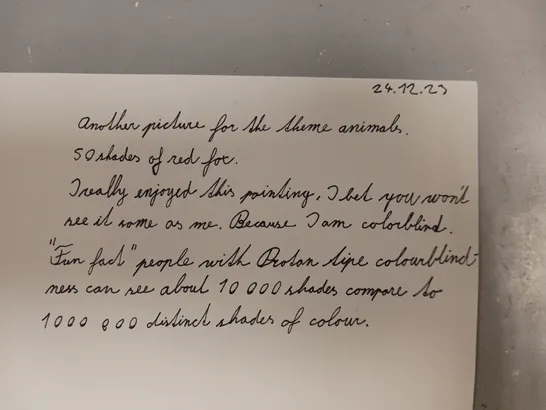 24.12.23
Another picture for the theme animals.
50 shades of red fox.
I really enjoyed this painting. I bet you won't
see it some as me. Because I am colorblind.
"Fun fact" people with Protan tipe colourblind-
ness can see about 10 000 shades compare to
1000 000 distinct shades of colour.